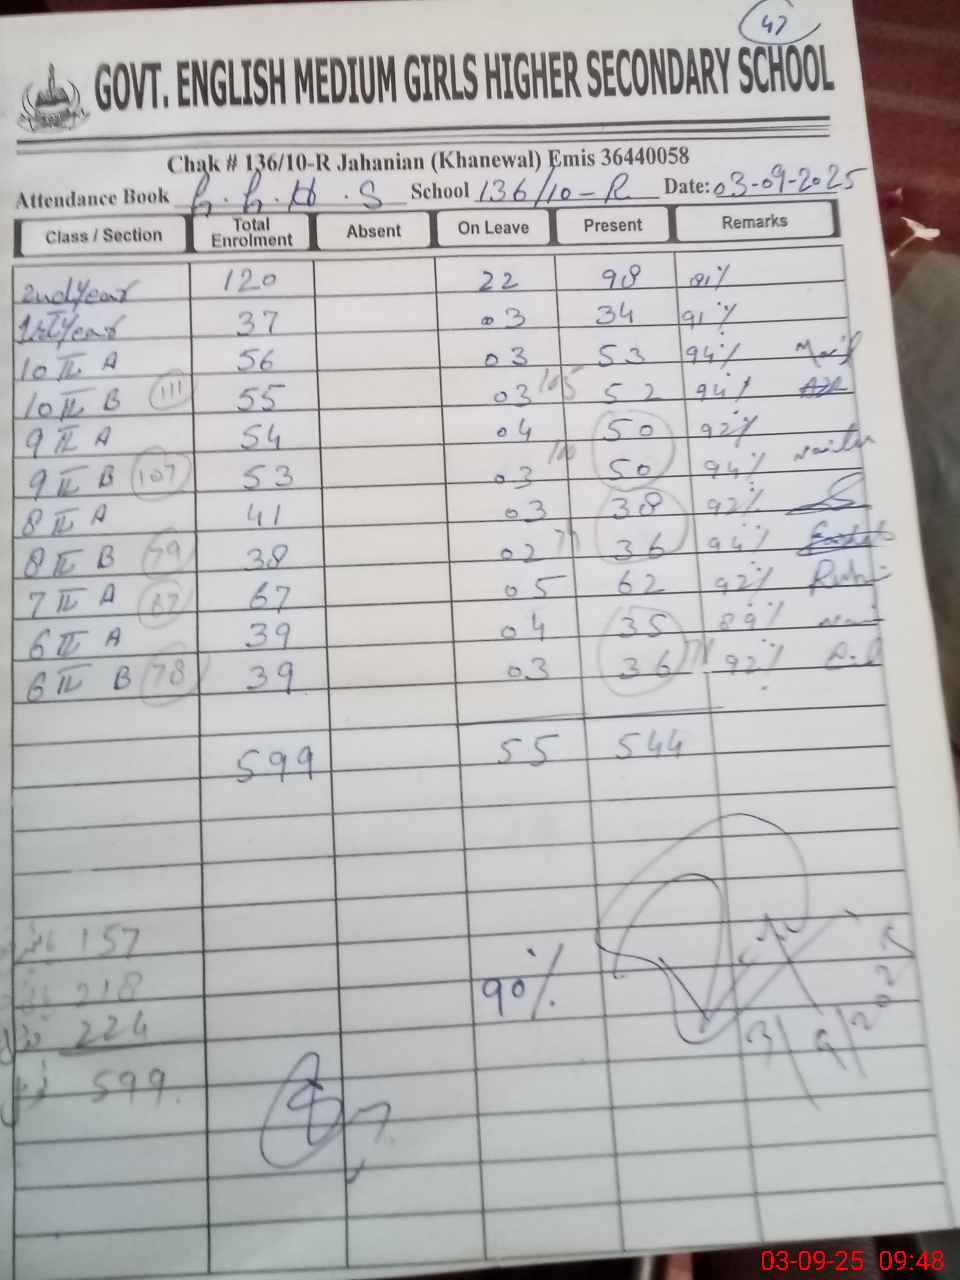 47
GOVT. ENGLISH MEDIUM GIRLS HIGHER SECONDARY SCHOOL
Chak # 136/10-R Jahanian (Khanewal) Emis 36440058
Attendance Book G.G.H.S School 136/10-R Date: 03-09-2025
Class / Section Total Enrolment Absent On Leave Present Remarks
2nd Year 120 22 98 81%
1st Year 37 03 34 91%
10th A 56 03 53 94%
10th B 111 55 03 105 52 94%
9th A 54 04 50 92%
9th B 107 53 03 100 50 94%
8th A 41 03 38 92%
8th B 79 38 02 36 94%
7th A 67 67 05 62 92% Rubi
6th A 39 04 35 89%
6th B 78 39 03 36 71 92%
599 55 544
157
218
224
599
90%
3/9/2025
03-09-25 09:48